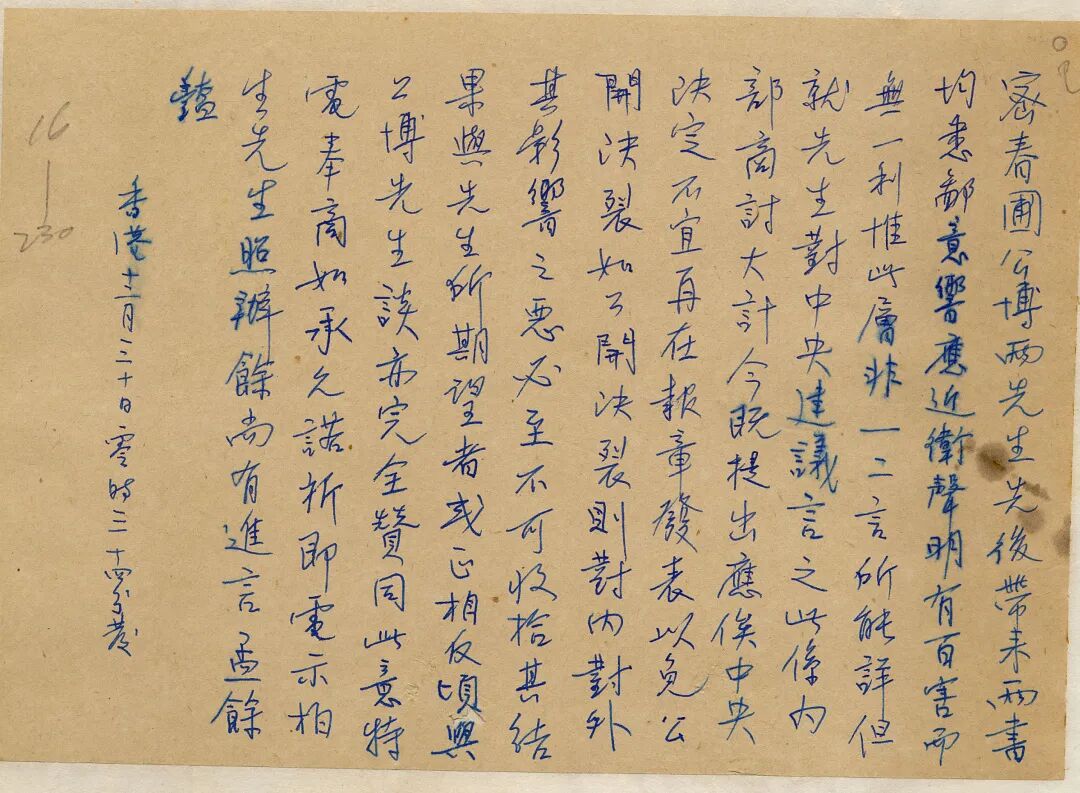 密春圃公博兩先生先後帶來兩書
均悉鄙意響應近衛聲明有百害而
無一利惟此層非一二言所能詳但
就先生對中央建議言之此係內
部商討大計今既提出應俟中央
決定不宜再在報章發表以免公
開決裂如公開決裂則對內對外
其影響之惡必至不可收拾其結
果與先生所期望者或正相反頃與
公博先生談亦完全贊同此意特
電奉商如承允諾祈即電示柏
生先生照辦餘尚有進言孟餘
豔
香港十二月三十日零時三十四分發
16
230